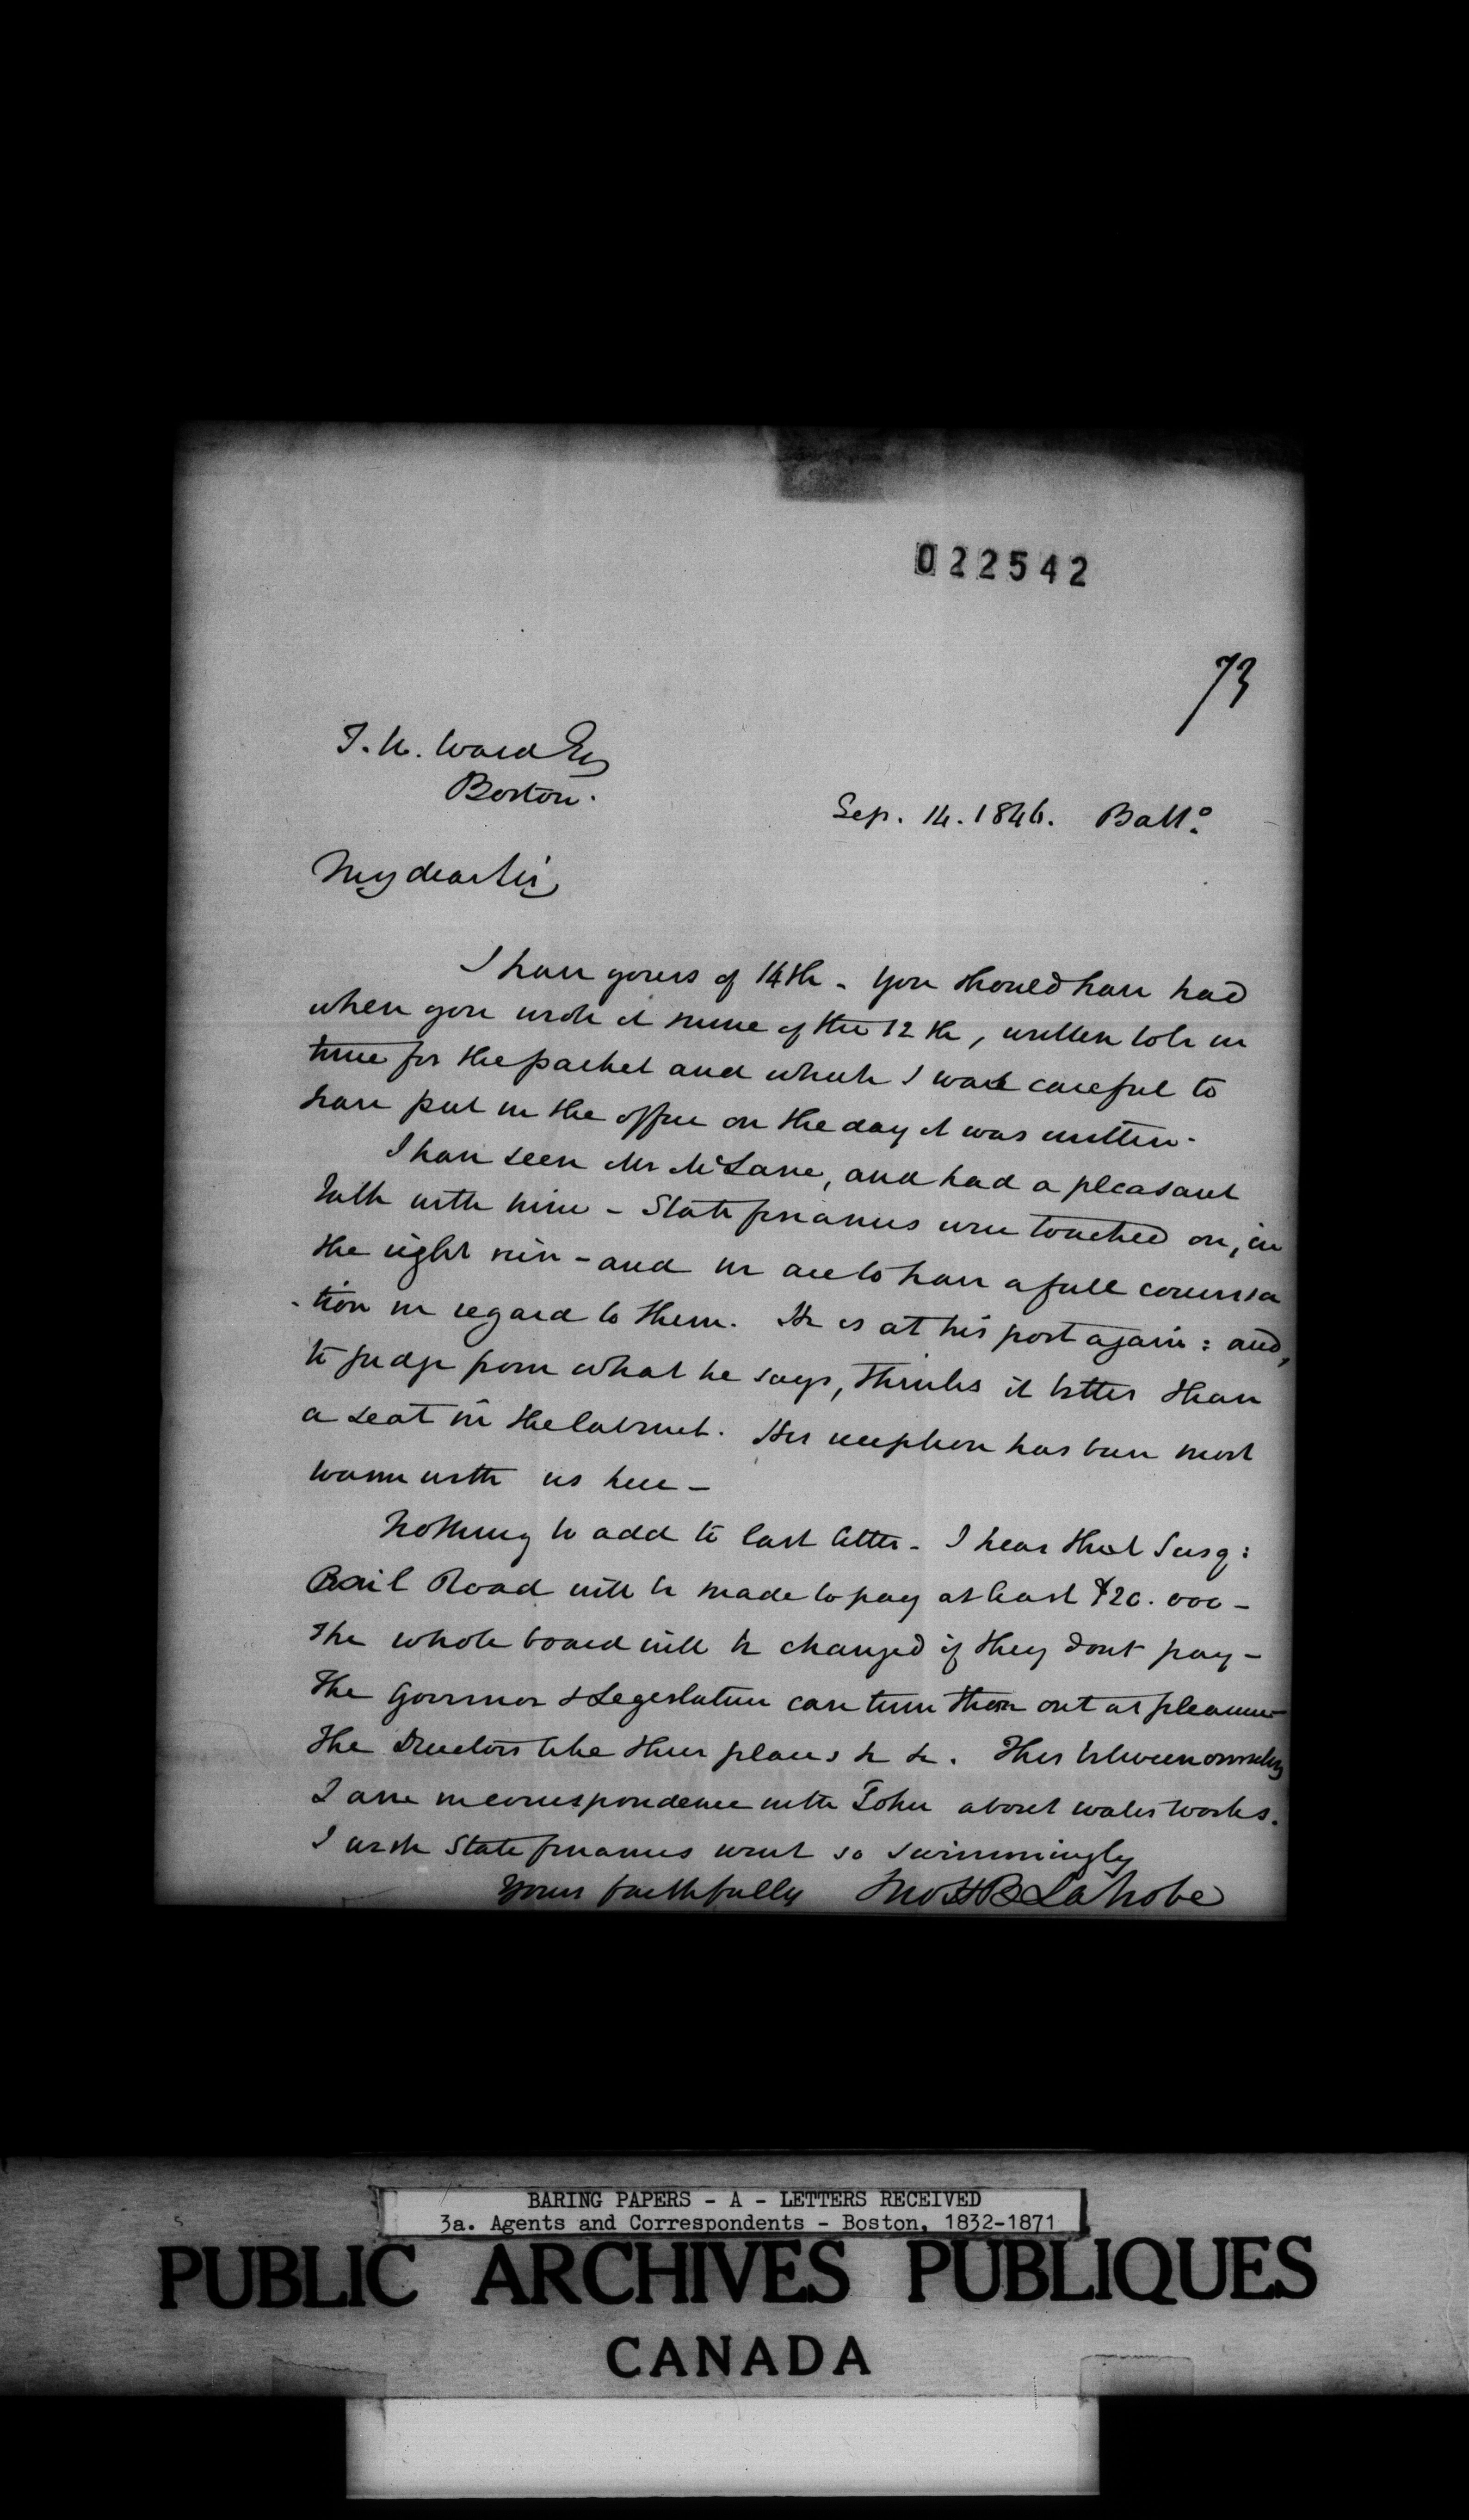 022542
73
T. W. Ward Esq
Boston.
Sep. 14. 1846. Balto.
My dear Sir,
I have yours of 14th - You should have had
when you wrote it mine of the 12th, written to be in
time for the packet and which I was careful to
have put in the office on the day it was written.
I have seen Mr McLane, and had a pleasant
talk with him - State finances were touched on, in
the right vein - and we are to have a full conversa
-tion in regard to them. He is at his post again: and,
to judge from what he says, thinks it better than
a seat in the Cabinet. His reception has been most
warm with us here -
Nothing to add to last letter - I hear that Susq:
Rail Road will be made to pay at least $20.000 -
The whole board will be changed if they dont pay -
The Governor & Legislature can turn them out at pleasure -
The Directors like their places &c &c. This between ourselves
I am in correspondence with John about water works.
I wish State finances went so swimmingly
Yours faithfully Jno H B Latrobe
BARING PAPERS - A - LETTERS RECEIVED
3a. Agents and Correspondents - Boston, 1832-1871
PUBLIC ARCHIVES PUBLIQUES
CANADA